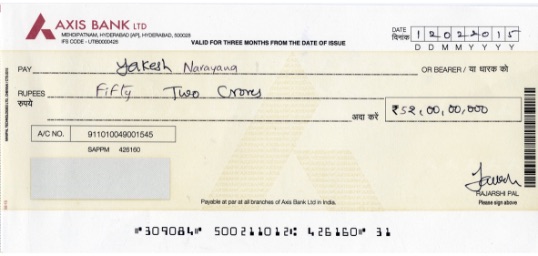 AXIS BANK LTD
MEHDIPATNAM, HYDERABAD (AP), HYDERABAD, 500028
IFS CODE - UTIB0000425
VALID FOR THREE MONTHS FROM THE DATE OF ISSUE
DATE
दिनांक 12022015
D D M M Y Y Y Y
PAY Yakesh Narayana OR BEARER / या धारक को
RUPEES Fifty Two Crores
रुपये
अदा करें ₹52,00,00,000
A/C NO. 911010049001545
SAPPM 426160
RAJARSHI PAL
Payable at par at all branches of Axis Bank Ltd in India.
Please sign above
⑈309084⑈ 500211012⑆ 426160⑈ 31